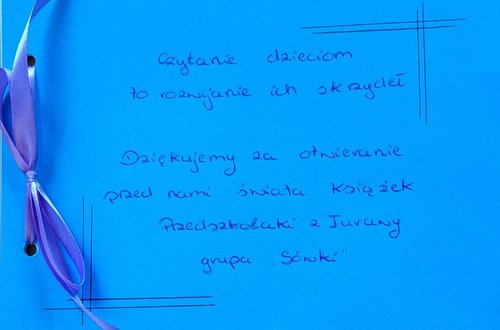 Czytanie dzieciom
to rozwijanie ich skrzydeł
Dziękujemy za otwieranie
przed nami świata książek
Przedszkolaki z Jurawy
grupa „Sówki”